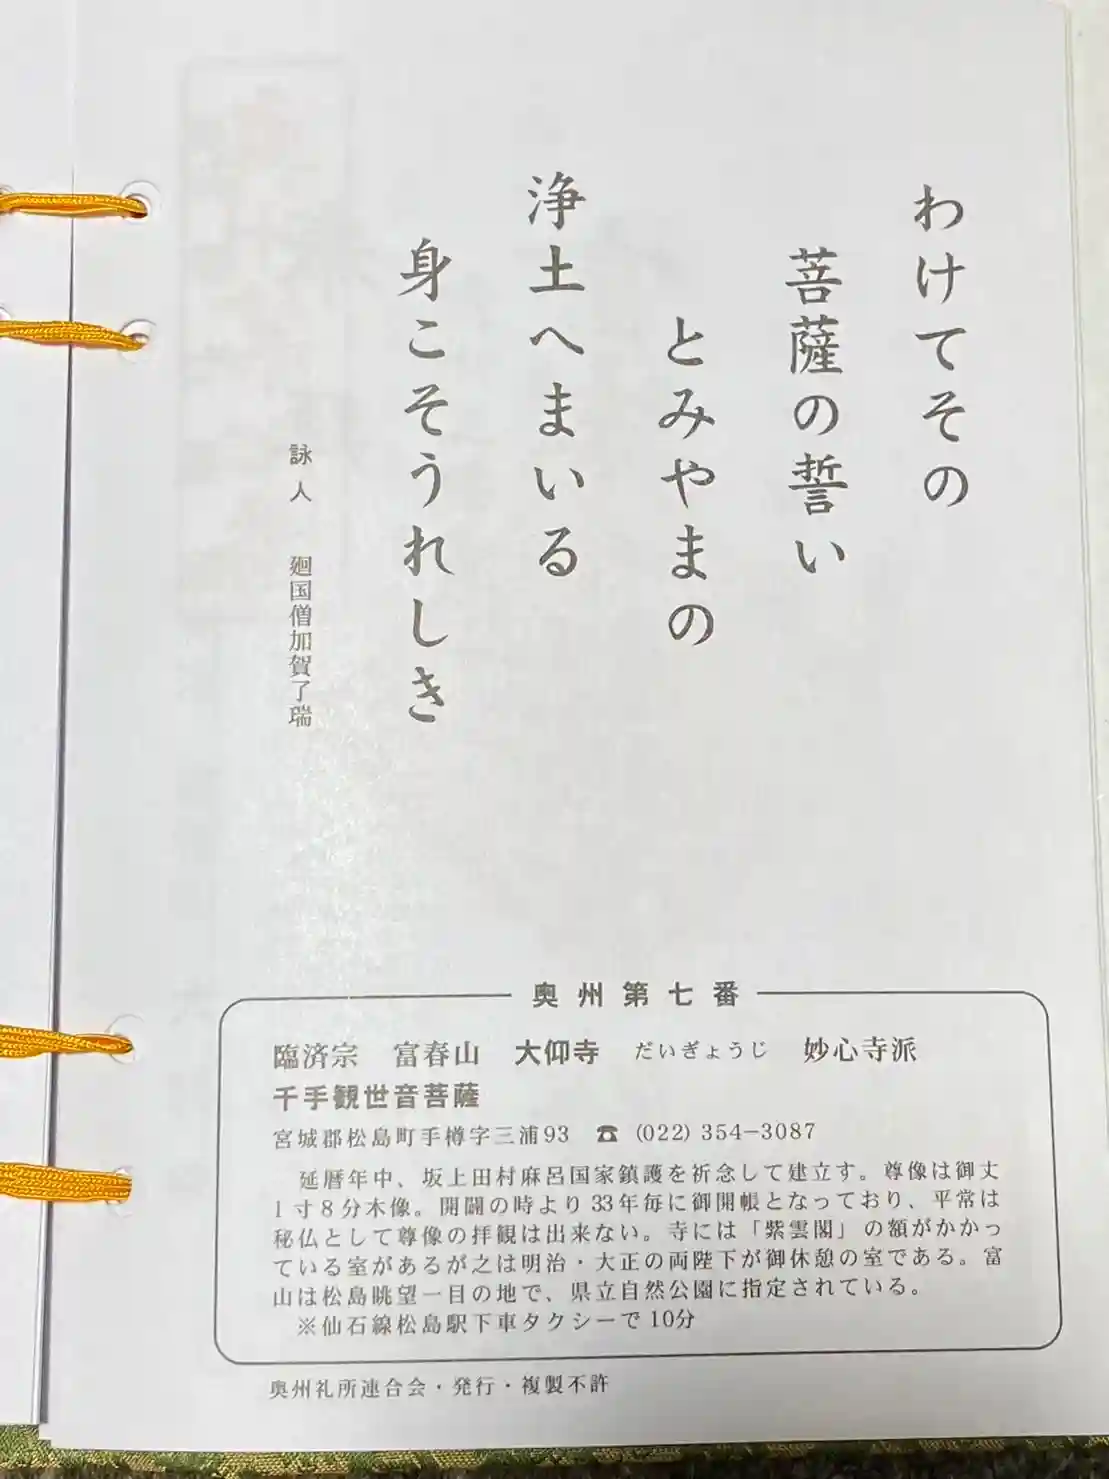 わけてその
菩薩の誓い
とみやまの
浄土へまいる
身こそうれしき
詠人 廻国僧加賀了瑞
奥州第七番
臨済宗 富春山 大仰寺 だいぎょうじ 妙心寺派
千手観世音菩薩
宮城郡松島町手樽字三浦93 ☎ (022) 354−3087
延暦年中、坂上田村麻呂国家鎮護を祈念して建立す。尊像は御丈
1寸8分木像。開闢の時より33年毎に御開帳となっており、平常は
秘仏として尊像の拝観は出来ない。寺には「紫雲閣」の額がかかっ
ている室があるが之は明治・大正の両陛下が御休憩の室である。富
山は松島眺望一目の地で、県立自然公園に指定されている。
※仙石線松島駅下車タクシーで10分
奥州礼所連合会・発行・複製不許